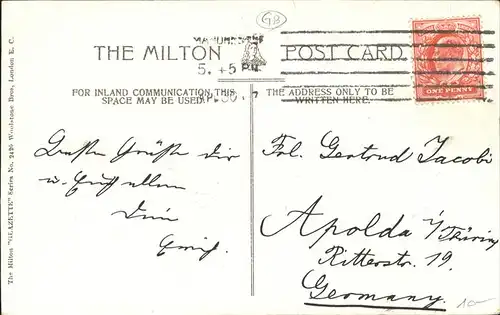 GB
MANCHESTER
5. + 5 PM
THE MILTON POST CARD.
ONE PENNY
FOR INLAND COMMUNICATION, THIS
SPACE MAY BE USED
THE ADDRESS ONLY TO BE
WRITTEN HERE.
Besten Grüße dir
u. Euch allen
Dein
Frl. Gertrud Jacobi
Apolda i/Thüring
Ritterstr. 19.
Germany.
The Milton "GLAZETTE" Series No. Woolstone Bros., London E. C.